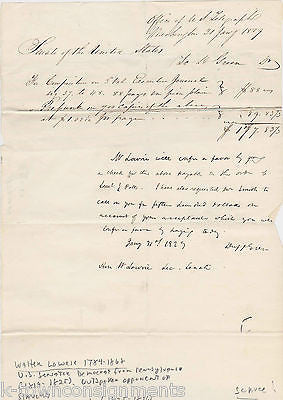 Office of U S Telegraph
Washington 21 Jany 1829
Senate of the United States
To D Green Dr
To Composition on 2 Vol Executive Journal
No 37 to 48. 88 pages $1 per plain
$88
Presswork on 700 copies of the above
at per page
89.83
$177.83
Mr Lowrie will confer a favor by giving
a check for the above payable to the order of
I have also requested Mr Smith to
call on you for fifteen hundred dollars on
account of your acceptances which you will
confer a favor by paying today
Jany 21st 1829 Duff Green
Hon W Lowrie Sec. Senate
Walter Lowrie 1784-1868
U.S. Senator Democrat from Pennsylvania
(1819-1825). Outspoken opponent of
slavery
scarce!
k-townconsignments.com